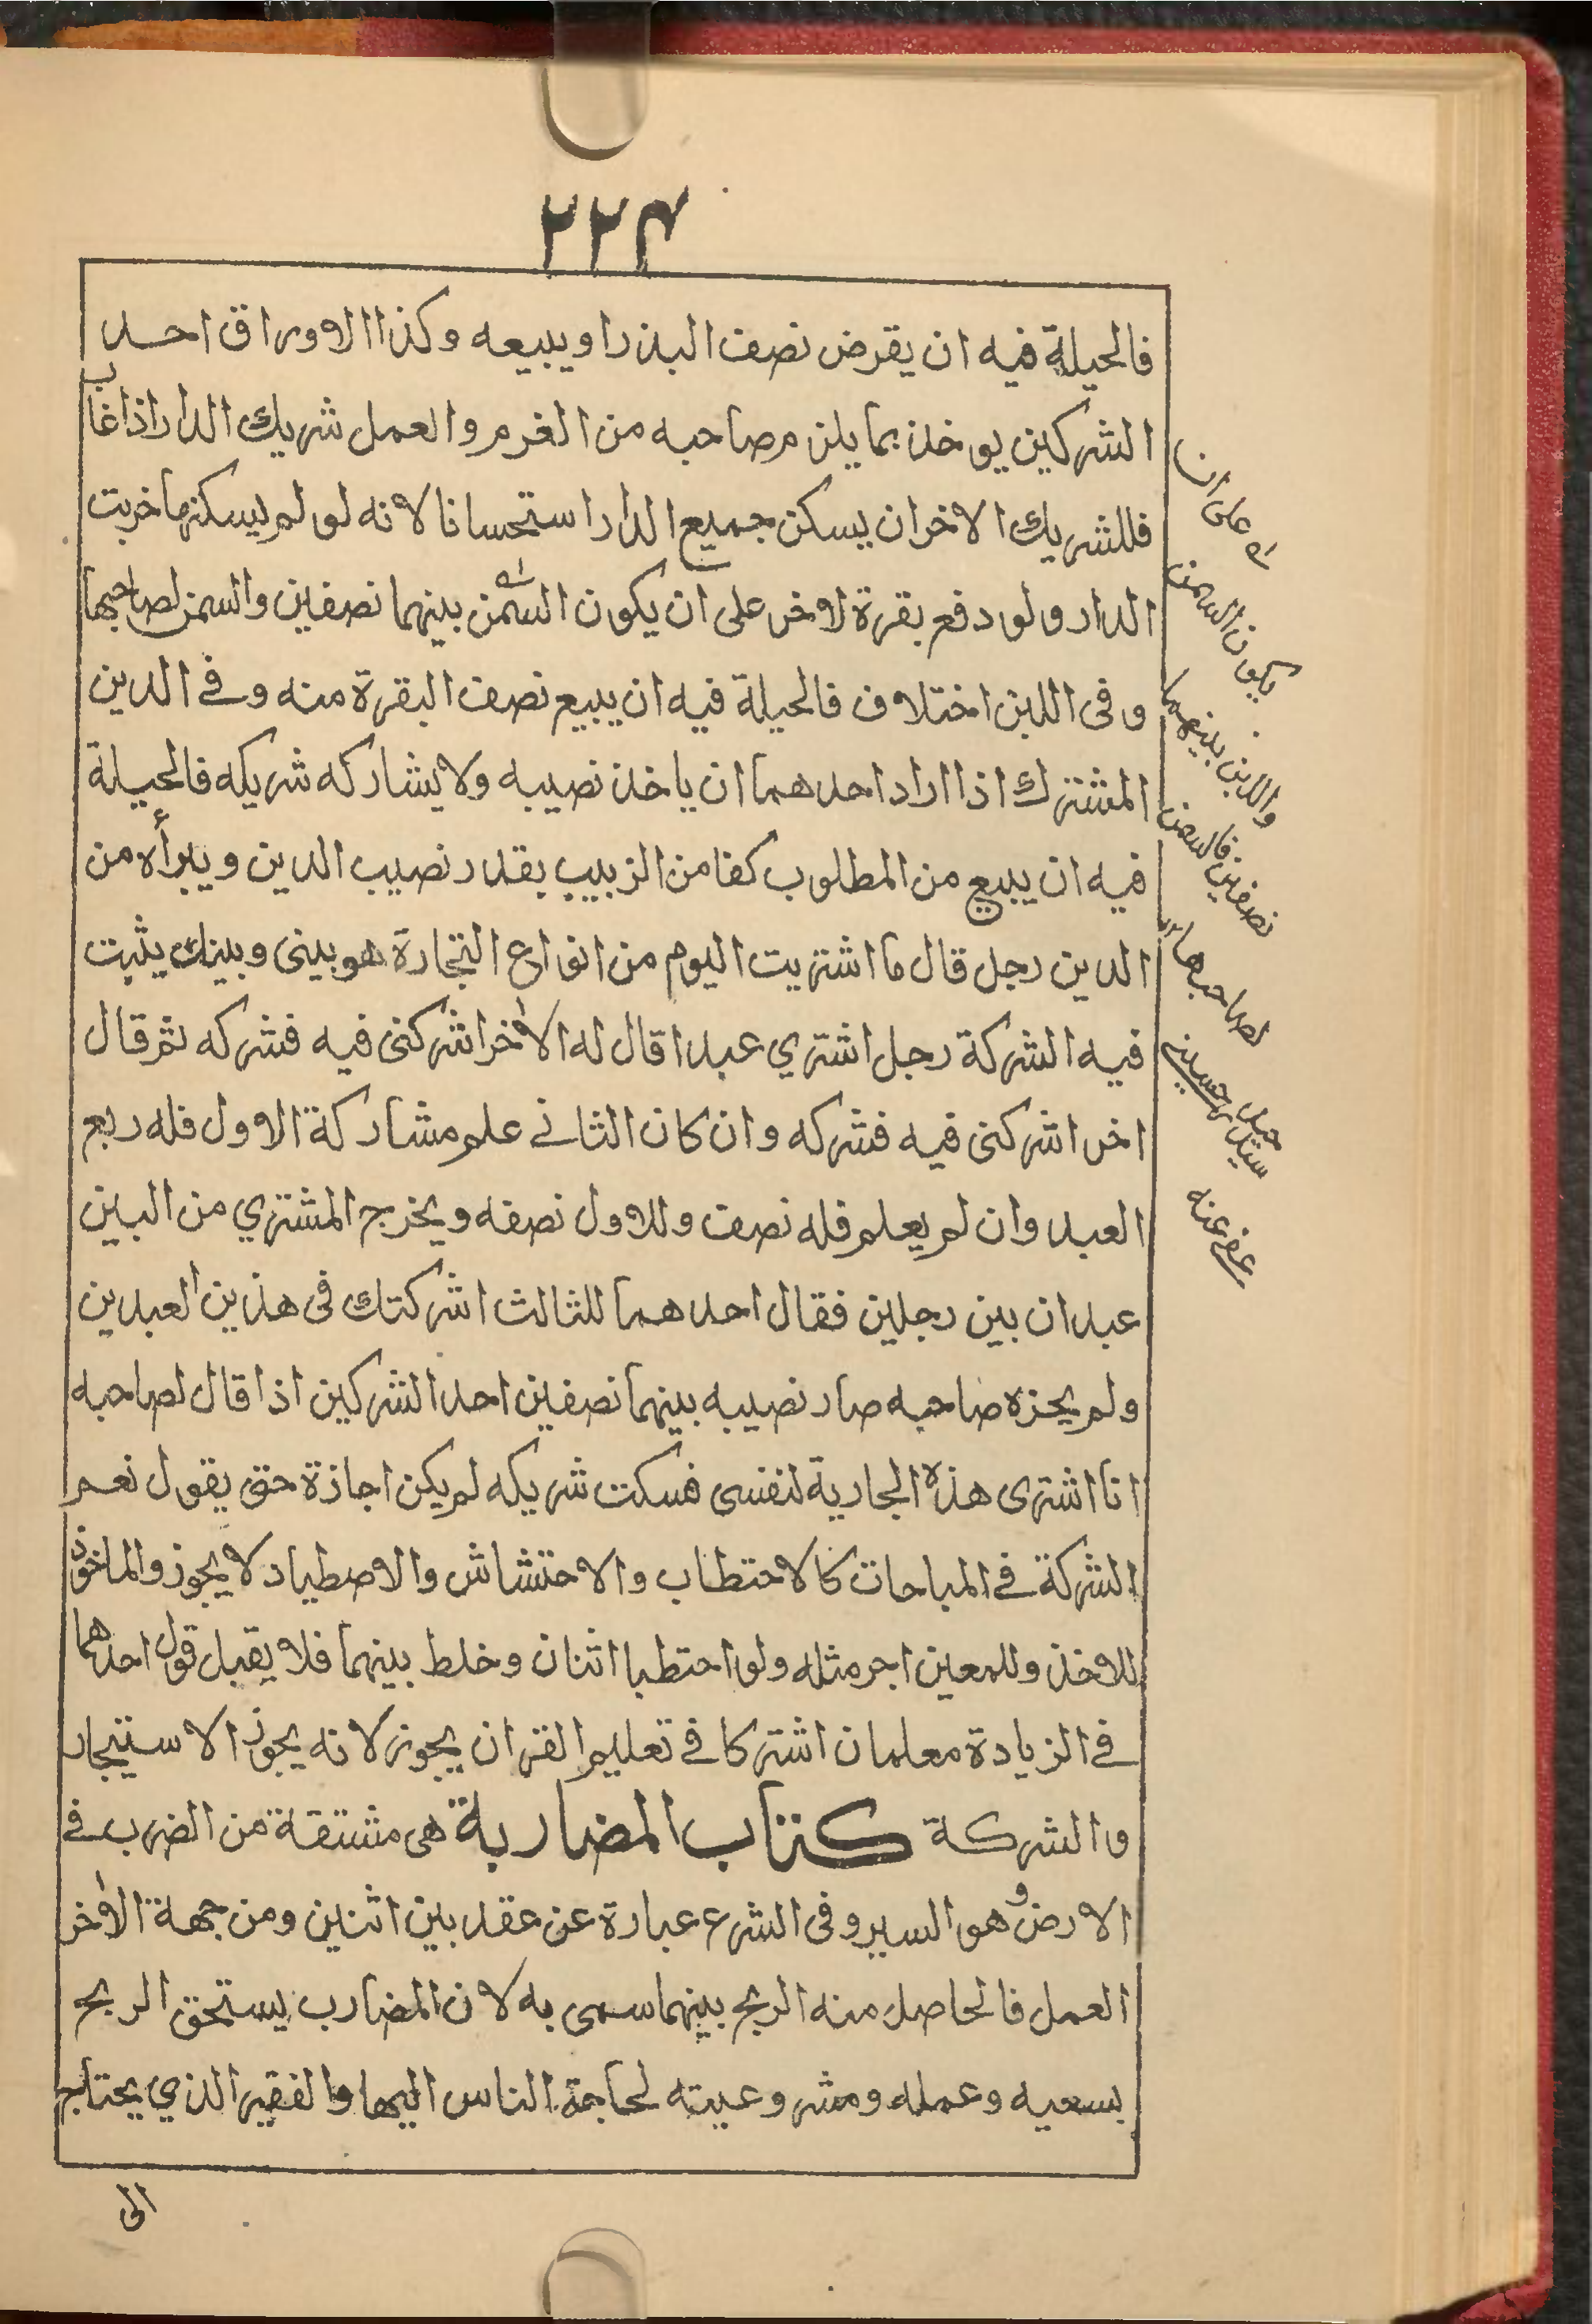 ٢٢٤
فالحيلة فيه ان يقرض نصف البذر او يبيعه وكذا الاوراق احد
الشركين يوخذ بما يلزم صاحبه من الغرم والعمل شريك الدار اذا غاب
فللشريك الاخر ان يسكن جميع الدار استحسانا لانه لو لم يسكنها خربت
الدار ولو دفع بقرة لاخر على ان يكون السمن بينهما نصفين والسمن لصاحبها
وفى اللبن اختلاف فالحيلة فيه ان يبيع نصف البقرة منه وفي الدين
المشترك اذا اراد احدهما ان ياخذ نصيبه ولا يشاركه شريكه فالحيلة
فيه ان يبيع من المطلوب كفا من الزبيب بقدر نصيب الدين ويبرأه من
الدين رجل قال ما اشتريت اليوم من انواع التجارة هو بينى وبينك يثبت
فيه الشركة رجل اشتري عبدا قال له الاخر اشركنى فيه فشركه ثم قال
اخر اشركنى فيه فشركه وان كان الثاني علم مشاركة الاول فله ربع
العبد وان لم يعلم فله نصف وللاول نصفه ويخرج المشتري من البين
عبدان بين رجلين فقال احدهما للثالث اشركتك فى هذين العبدين
ولم يجزه صاحبه صار نصيبه بينهما نصفين احد الشركين اذا قال لصاحبه
انا اشترى هذه الجارية لنفسى فسكت شريكه لم يكن اجازة حتى يقول نعم
الشركة في المباحات كالاحتطاب والاحتشاش والاصطياد لا يجوز والماخوذ
للاخذ وللمعين اجر مثله ولو احتطبا اثنان وخلط بينهما فلا يقبل قول احدهما
في الزيادة معلمان اشتركا في تعليم القران يجوز لانه يجوز الاستيجار
والشركة كتاب المضاربة هى مشتقة من الضرب في
الارض وهو السير وفى الشرع عبارة عن عقد بين اثنين ومن جهة الاخر
العمل فالحاصل منه الربح بينهما سمى به لان المضارب يستحق الربح
بسعيه وعمله ومشروعيته لحاجة الناس اليها والفقير الذي يحتاج
الى
على ان
يكون السمن
واللبن بينهما
نصفين فالسمن
لصاحبها
عفى عنه